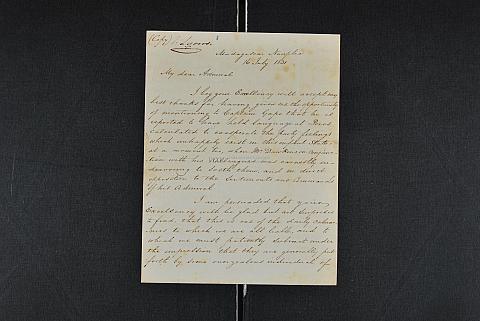 (Copy) Lyons.
Madagascar Nauplia
16 July 1831
My dear Admiral
I beg your Excellency will accept my
best thanks for having given me the opportunity
of mentioning to Captain Gape that he is
reported to have held language at Poros
calculated to exasperate the party feelings
which unhappily exist in this unhappy State
at a moment too, when Mr Dawkins in conjunction
with his Colleagues was earnestly en-
deavouring to sooth them, and in direct
opposition to the Sentiments and Commands
of his Admiral.
I am persuaded that your
Excellency will be glad but not surprised
to find, that this is one of the daily calum-
nies to which we are all liable, and to
which we must patiently submit under
the impression that they are generally put
forth by some overzealous individual of